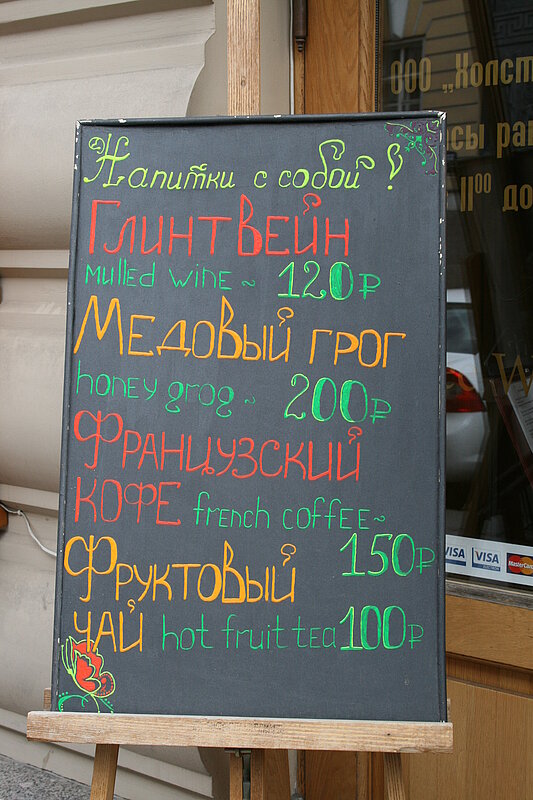 Напитки с собой!
Глинтвейн
mulled wine ~ 120₽
Медовый грог
honey grog ~ 200₽
Французский
кофе french coffee~
150₽
Фруктовый
чай hot fruit tea 100₽
ООО „Холст
11⁰⁰ до
VISA VISA MasterCard